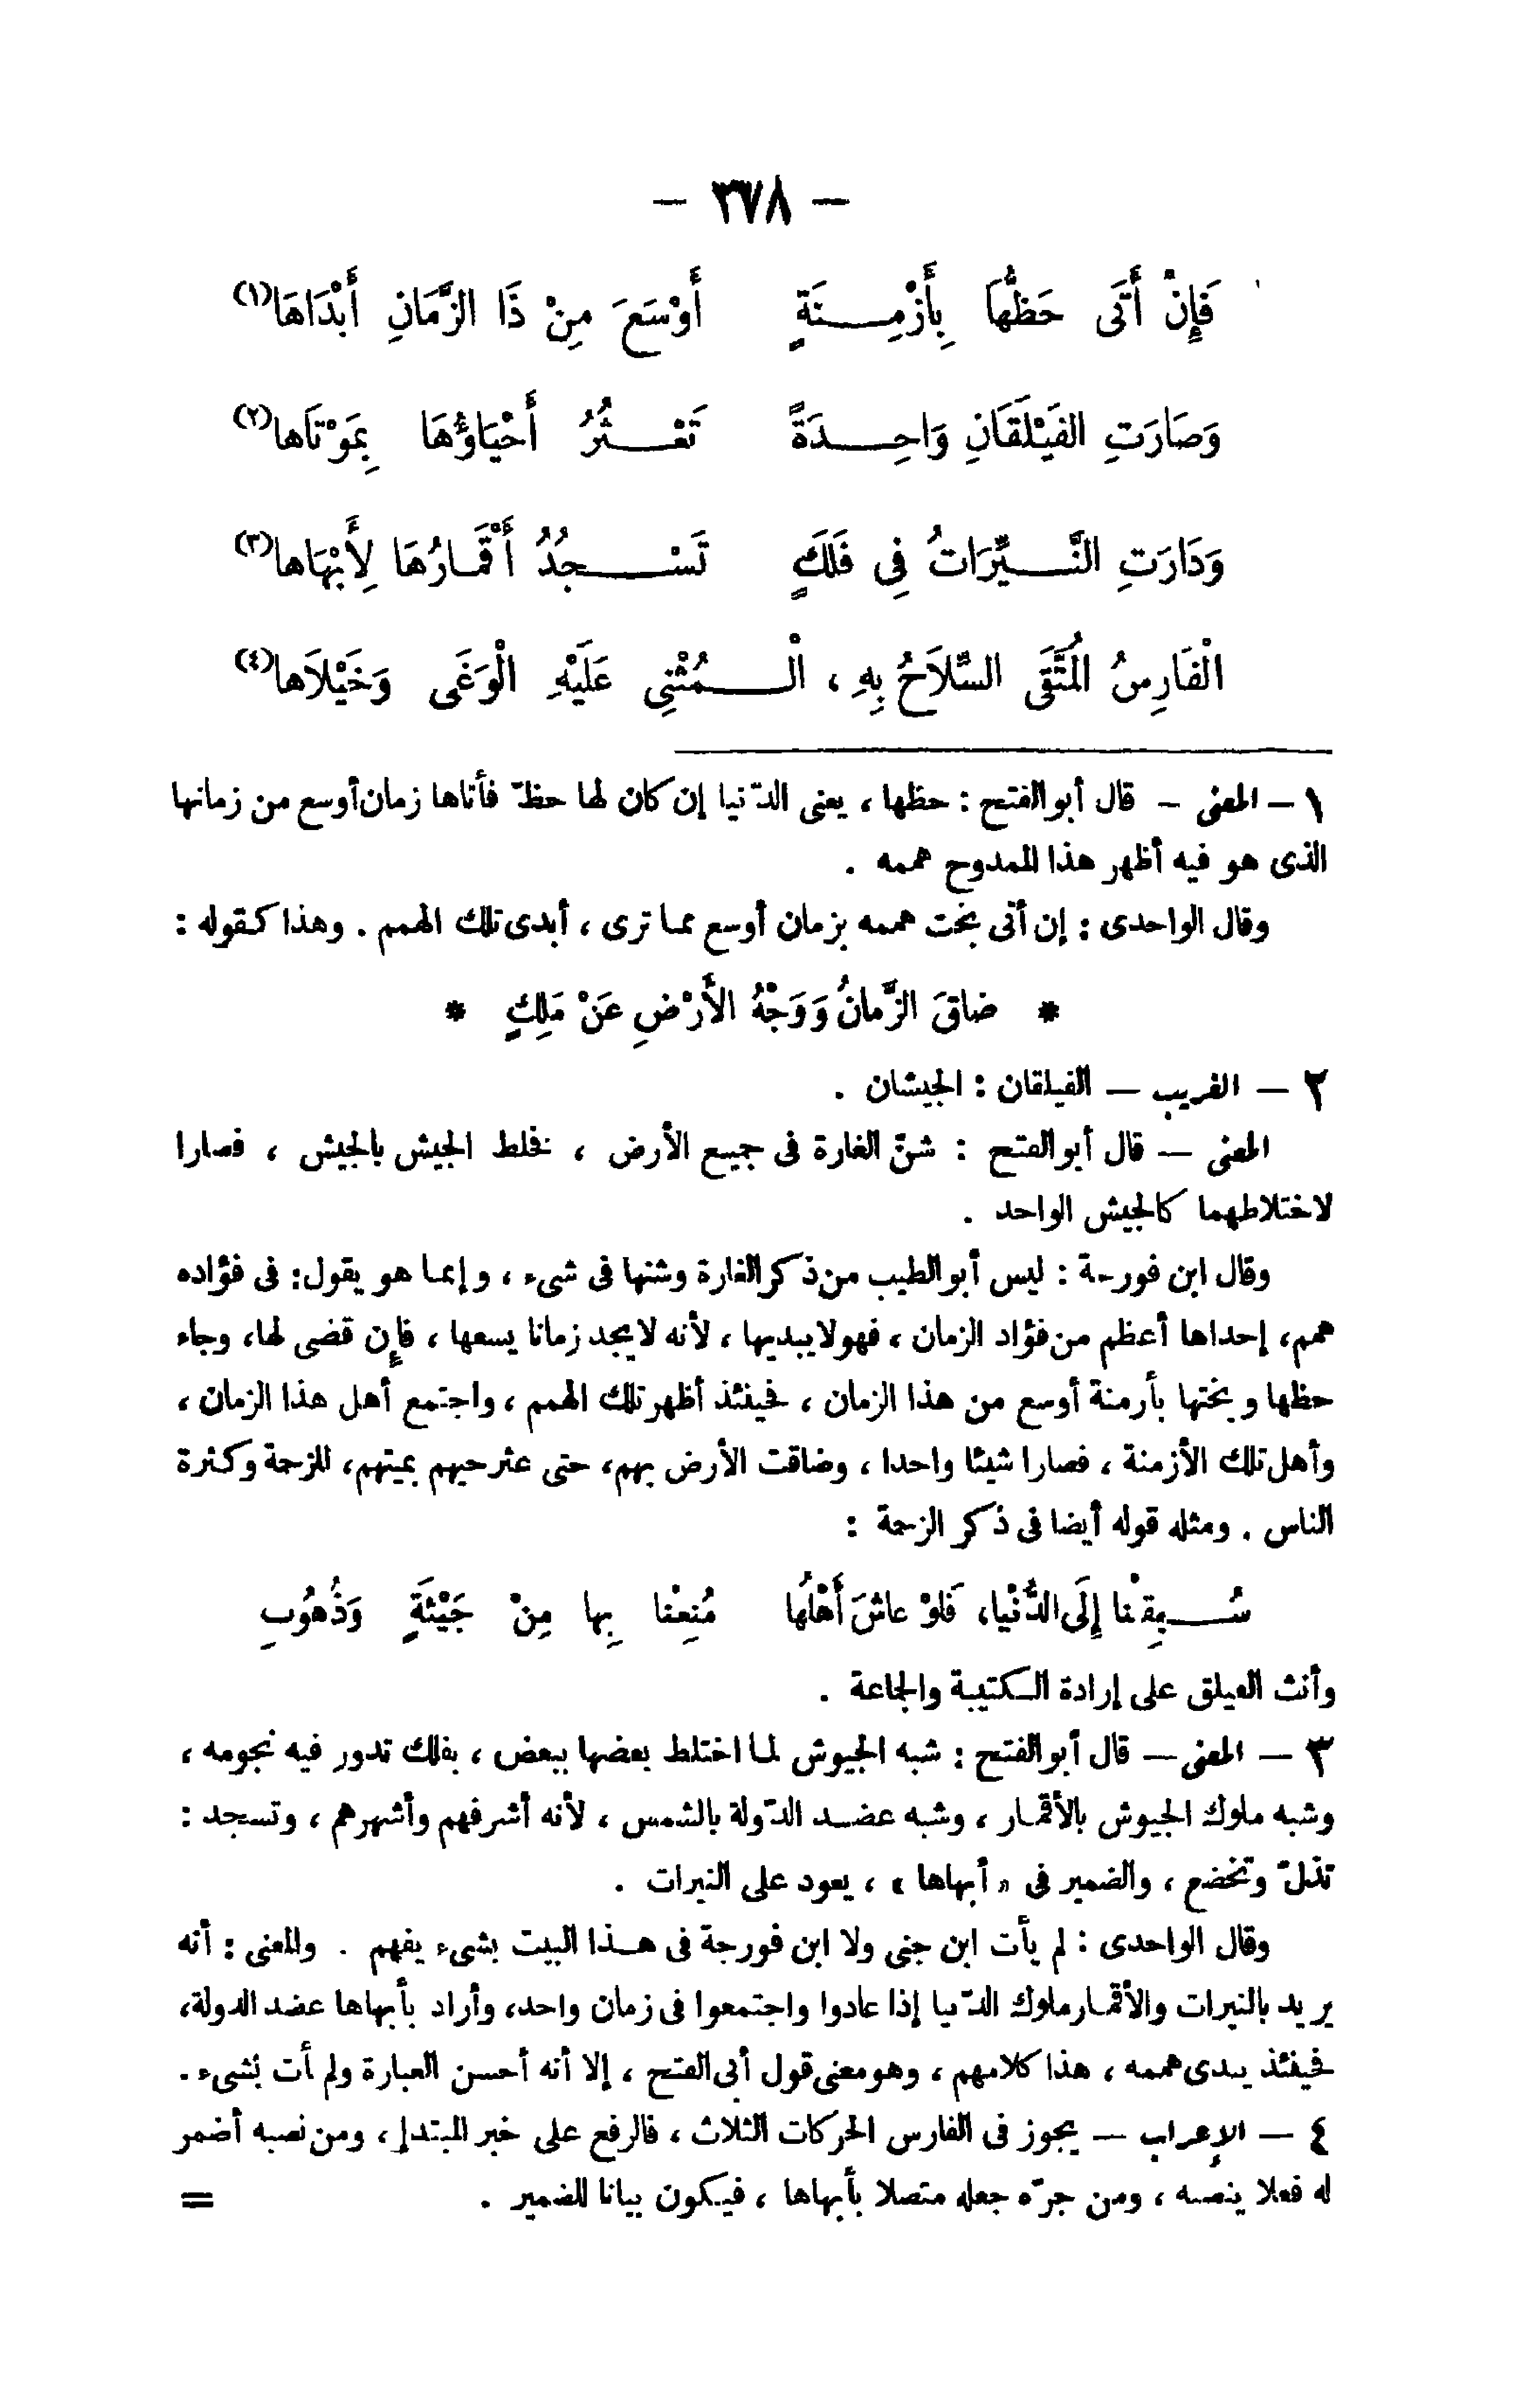 – ٣٧٨ –
فَإِنْ أَتَى حَظُّهَا بِأَزْمِـنَةٍ أَوْسَعَ مِنْ ذَا الزَّمَانِ أَبْدَاهَا(١)
وَصَارَتِ الفَيْلَقَانِ وَاحِـدَةً تَعْـثُرُ أَحْيَاؤُهَا بِمَوْتَاها(٢)
وَدَارَتِ النَّـيِّرَاتُ فِى فَلَكٍ تَسْـجُدُ أَقْمَارُهَا لِأَبْهَاها(٣)
الْفَارِسُ الْمُتَّقَى السِّلَاحُ بِهِ ، الْـمُثْنِى عَلَيْهِ الْوَغَى وَخَيْلَاها(٤)
١ – المعنى – قال أبو الفتح : حظها ، يعنى الدّنيا إن كان لها حظّ فأتاها زمان أوسع من زمانها
الذى هو فيه أظهر هذا الممدوح هممه .
وقال الواحدى : إن أتى بخت هممه بزمان أوسع مما ترى ، أبدى تلك الهمم . وهذا كقوله :
* ضاقَ الزَّمانُ وَوَجْهُ الأَرْضِ عَنْ مَلِكٍ *
٢ – الغريب – الفيلقان : الجيشان .
المعنى – قال أبو الفتح : شنّ الغارة فى جميع الأرض ، خلط الجيش بالجيش ، فصارا
لاختلاطهما كالجيش الواحد .
وقال ابن فورجة : ليس أبو الطيب من ذكر الغارة وشنها فى شىء ، وإنما هو يقول : فى فؤاده
همم ، إحداها أعظم من فؤاد الزمان ، فهو لا يبديها ، لأنه لا يجد زمانا يسعها ، فإن قضى لها ، وجاء
حظها وبختها بأزمنة أوسع من هذا الزمان ، فحينئذ أظهر تلك الهمم ، واجتمع أهل هذا الزمان ،
وأهل تلك الأزمنة ، فصارا شيئا واحدا ، وضاقت الأرض بهم ، حتى عثر حيهم بميتهم ، للزحمة وكثرة
الناس . ومثله قوله أيضا فى ذكر الزحمة :
سُـبِقْنا إِلَى الدُّنْيا ، فَلَوْ عاشَ أَهْلُها مُنِعْنا بِها مِنْ جَيْئَةٍ وَذُهُوبِ
وأنث الفيلق على إرادة الكتيبة والجماعة .
٣ – المعنى – قال أبو الفتح : شبه الجيوش لما اختلط بعضها ببعض ، بفلك تدور فيه نجومه ،
وشبه ملوك الجيوش بالأقمار ، وشبه عضد الدّولة بالشمس ، لأنه أشرفهم وأشهرهم ، وتسجد :
تذلّ وتخضع ، والضمير فى « أبهاها » ، يعود على النيرات .
وقال الواحدى : لم يأت ابن جنى ولا ابن فورجة فى هذا البيت بشىء يفهم . والمعنى : أنه
يريد بالنيرات والأقمار ملوك الدّنيا إذا عادوا واجتمعوا فى زمان واحد ، وأراد بأبهاها عضد الدولة ،
فحينئذ يبدى هممه ، هذا كلامهم ، وهو معنى قول أبى الفتح ، إلا أنه أحسن العبارة ولم أت بشىء .
٤ – الإعراب – يجوز فى الفارس الحركات الثلاث ، فالرفع على خبر المبتدإ ، ومن نصبه أضمر
له فعلا ينصبه ، ومن جرّه جعله متصلا بأبهاها ، فيكون بيانا للضمير . =